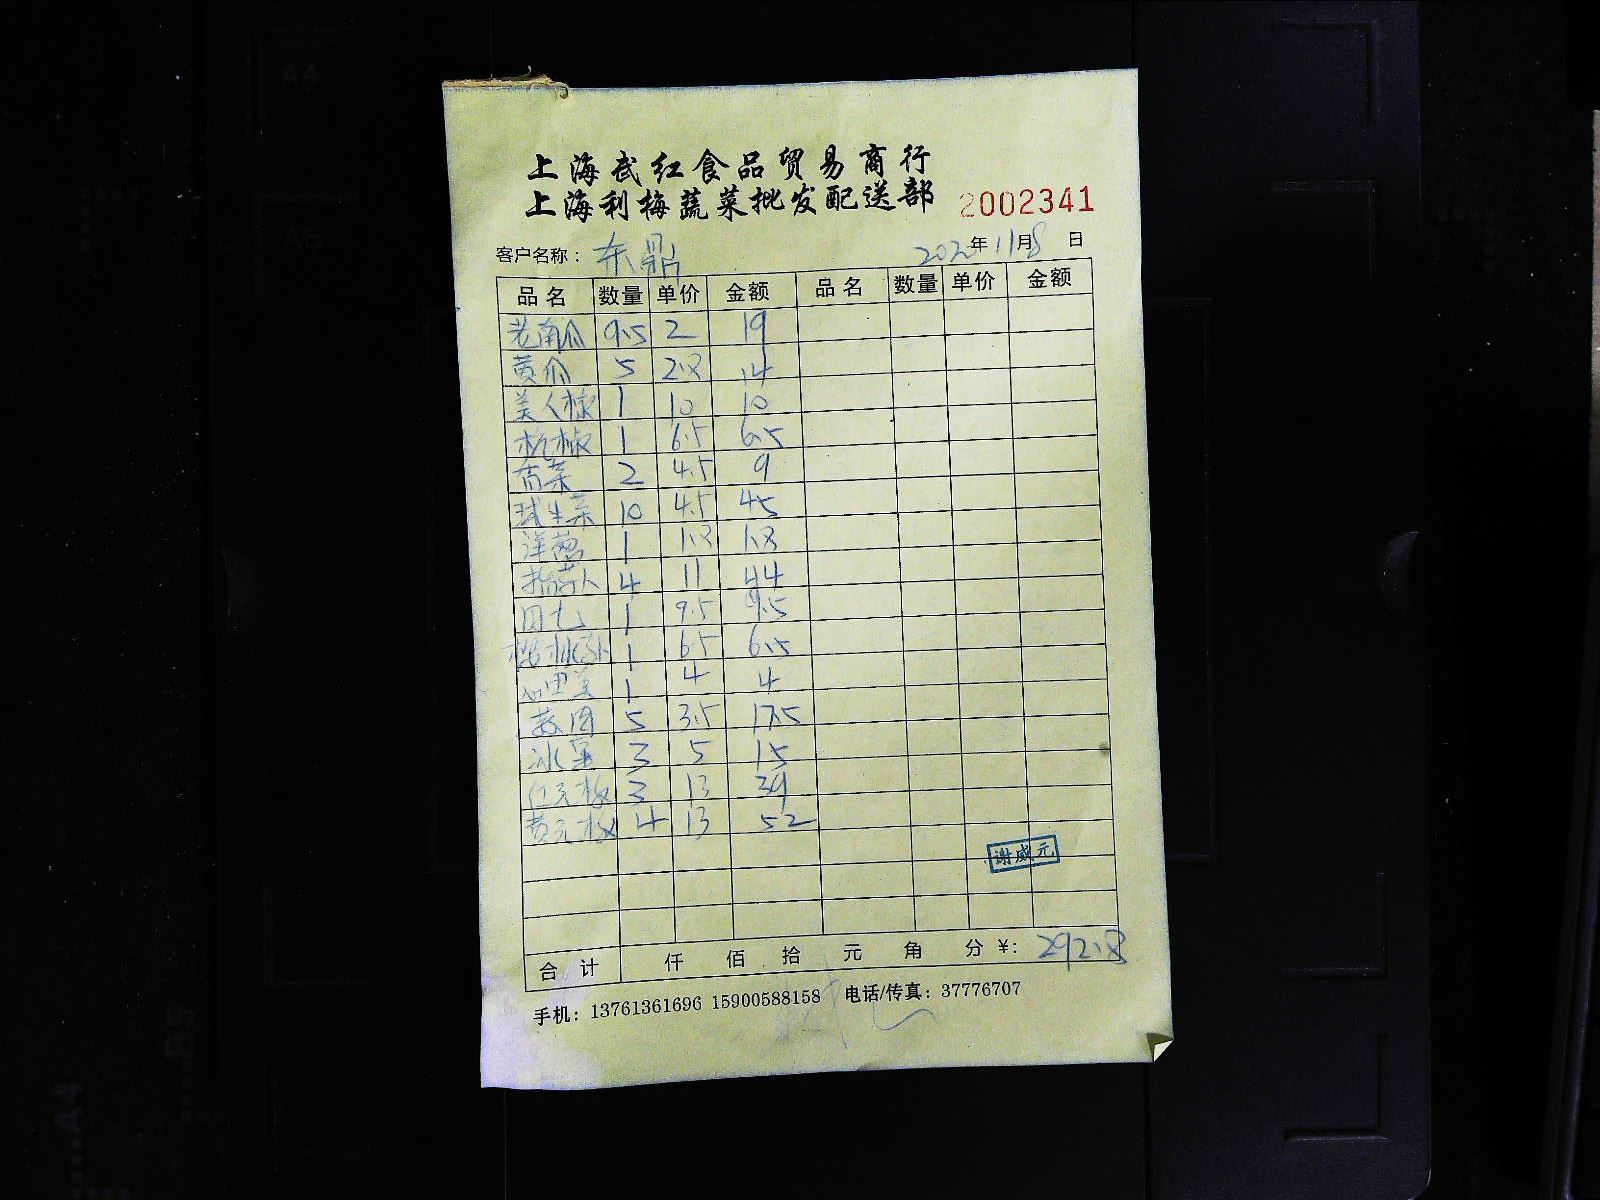 上海武红食品贸易商行
上海利梅蔬菜批发配送部 2002341
客户名称： 东鼎 2020年11月8日
品名 数量 单价 金额 品名 数量 单价 金额
老南瓜 9.5 2 19
黄瓜 5 2.8 14
美人椒 1 10 10
杭椒 1 6.5 6.5
2 4.5 9
球生菜 10 4.5 45
洋葱 1 1.8 1.8
4 11 44
1 9.5 9.5
1 6.5 6.5
心里美 1 4 4
5 3.5 17.5
冰草 3 5 15
红元椒 3 13 39
黄元椒 4 13 52
谢威元
合计 仟 佰 拾 元 角 分 ¥: 292.8
手机：13761361696 15900588158 电话/传真：37776707